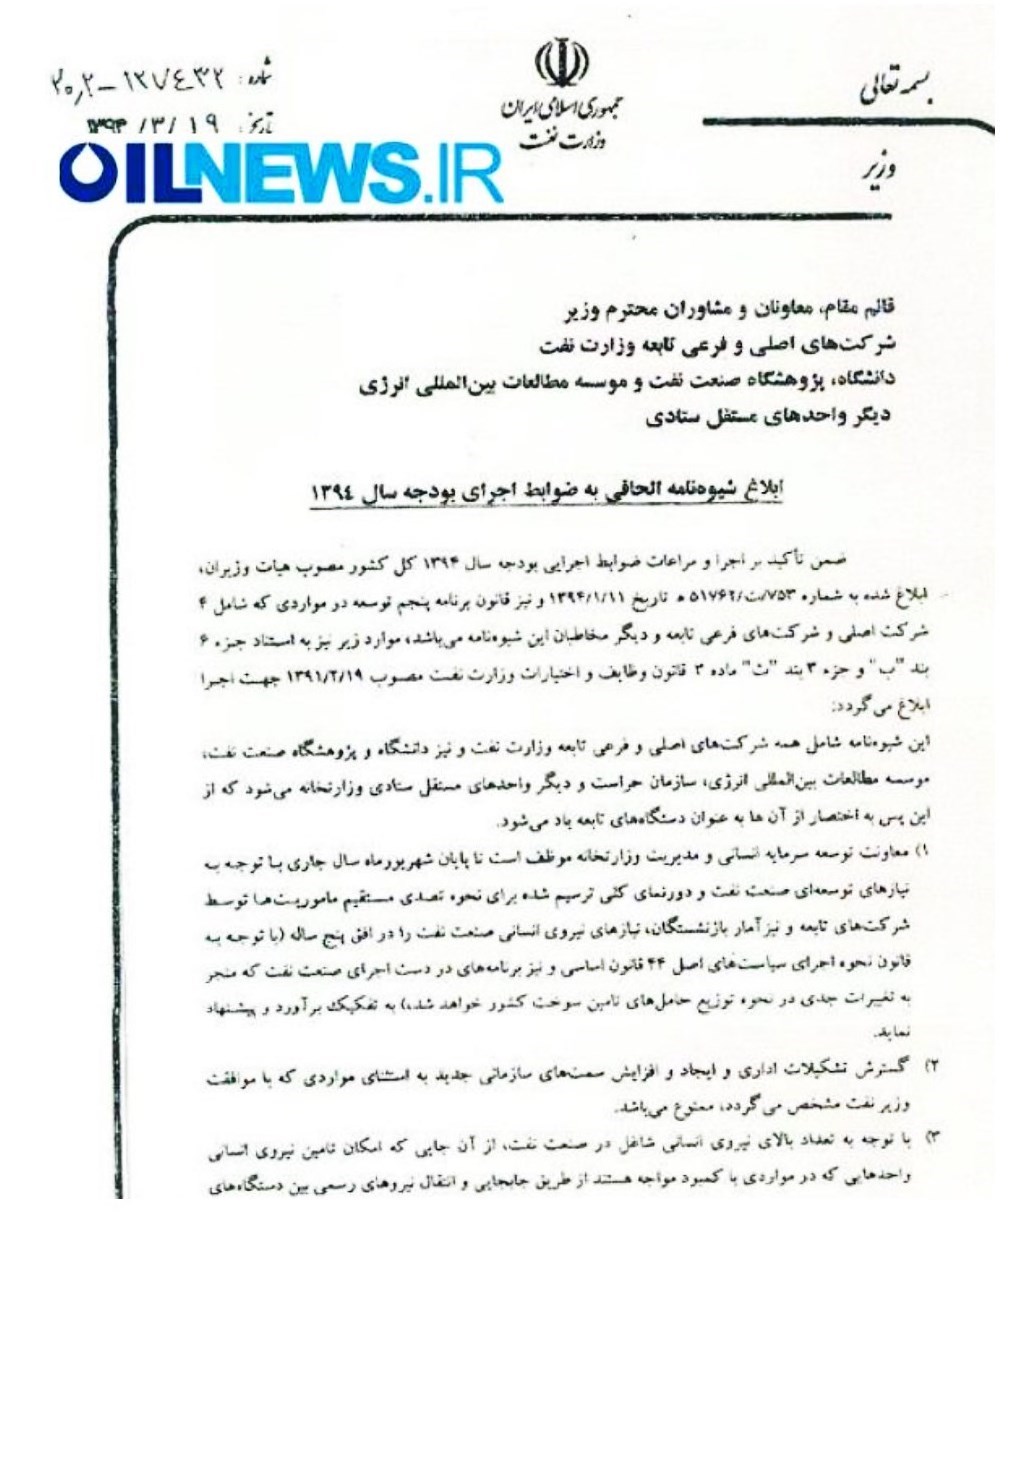 بسمه تعالی
جمهوری اسلامی ایران
وزارت نفت
وزیر
شماره: ۲۰٫۲-۱۲۷۴۳۲
تاریخ: ۱۳۹۴/۳/۱۹
OILNEWS.IR
قائم مقام، معاونان و مشاوران محترم وزیر
شرکت‌های اصلی و فرعی تابعه وزارت نفت
دانشگاه، پژوهشگاه صنعت نفت و موسسه مطالعات بین‌المللی انرژی
دیگر واحدهای مستقل ستادی
ابلاغ شیوه‌نامه الحاقی به ضوابط اجرای بودجه سال ۱۳۹۴
ضمن تأکید بر اجرا و مراعات ضوابط اجرایی بودجه سال ۱۳۹۴ کل کشور مصوب هیات وزیران،
ابلاغ شده به شماره ۷۵۳/ت/۵۱۷۶۲ ه تاریخ ۱۳۹۴/۱/۱۱ و نیز قانون برنامه پنجم توسعه در مواردی که شامل ۴
شرکت اصلی و شرکت‌های فرعی تابعه و دیگر مخاطبان این شیوه‌نامه می‌باشد، موارد زیر نیز به استناد جزء ۶
بند "ب" و جزء ۳ بند "ث" ماده ۳ قانون وظایف و اختیارات وزارت نفت مصوب ۱۳۹۱/۲/۱۹ جهت اجرا
ابلاغ می‌گردد:
این شیوه‌نامه شامل همه شرکت‌های اصلی و فرعی تابعه وزارت نفت و نیز دانشگاه و پژوهشگاه صنعت نفت،
موسسه مطالعات بین‌المللی انرژی، سازمان حراست و دیگر واحدهای مستقل ستادی وزارتخانه می‌شود که از
این پس به اختصار از آن ها به عنوان دستگاه‌های تابعه یاد می‌شود.
۱) معاونت توسعه سرمایه انسانی و مدیریت وزارتخانه موظف است تا پایان شهریورماه سال جاری با توجه به
نیازهای توسعه‌ای صنعت نفت و دورنمای کلی ترسیم شده برای نحوه تصدی مستقیم ماموریت‌ها توسط
شرکت‌های تابعه و نیز آمار بازنشستگان، نیازهای نیروی انسانی صنعت نفت را در افق پنج ساله (با توجه به
قانون نحوه اجرای سیاست‌های اصل ۴۴ قانون اساسی و نیز برنامه‌های در دست اجرای صنعت نفت که منجر
به تغییرات جدی در نحوه توزیع حامل‌های تامین سوخت کشور خواهد شد) به تفکیک برآورد و پیشنهاد
نماید.
۲) گسترش تشکیلات اداری و ایجاد و افزایش سمت‌های سازمانی جدید به استثنای مواردی که با موافقت
وزیر نفت مشخص می‌گردد، ممنوع می‌باشد.
۳) با توجه به تعداد بالای نیروی انسانی شاغل در صنعت نفت، از آن جایی که امکان تامین نیروی انسانی
واحدهایی که در مواردی با کمبود مواجه هستند از طریق جابجایی و انتقال نیروهای رسمی بین دستگاه‌های